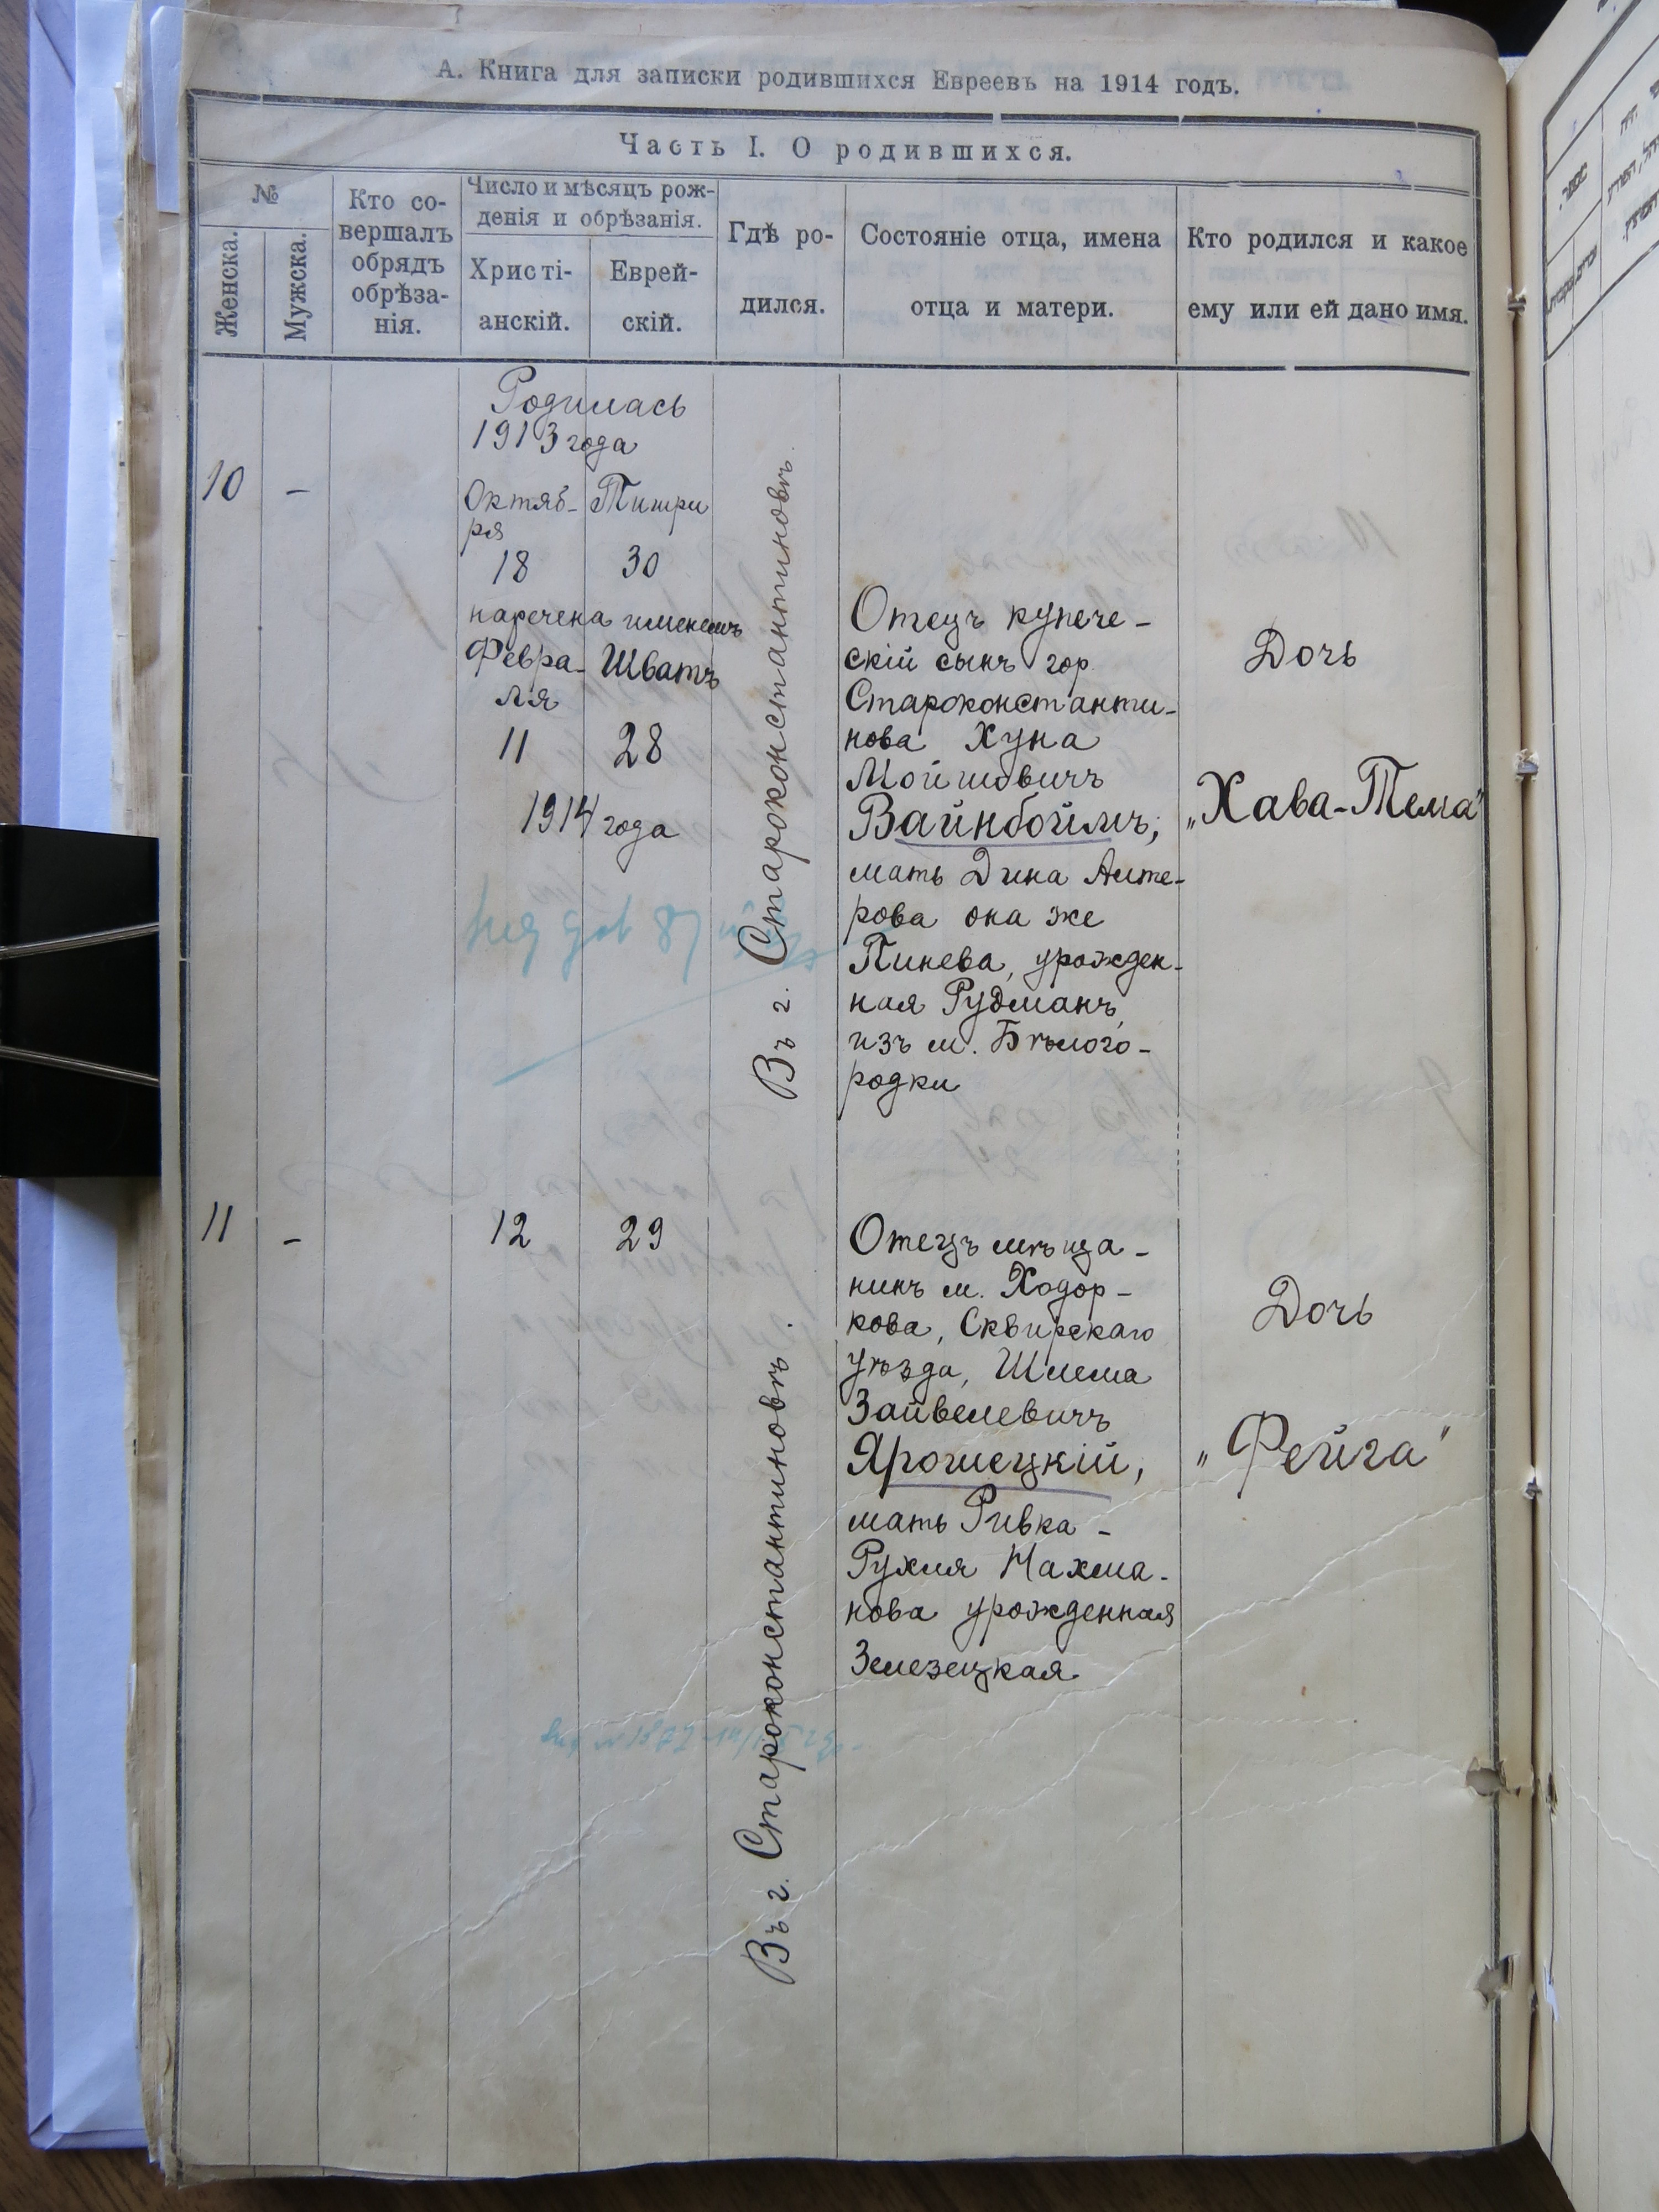 А. Книга для записки родившихся Евреевъ на 1914 годъ.
Часть I. О родившихся.
№
Женска.
Мужска.
Кто со-
вершалъ
обрядъ
обрѣза-
нія.
Число и мѣсяцъ рож-
денія и обрѣзанія.
Христі-
анскій.
Еврей-
скій.
Гдѣ ро-
дился.
Состояніе отца, имена
отца и матери.
Кто родился и какое
ему или ей дано имя.
10
–
Родилась
1913 года
Октяб-
ря
18
Тишри
30
наречена именемъ
Февра-
ля
11
Шватъ
28
1914 года
Въ г. Староконстантиновѣ.
Отецъ купече-
скій сынъ гор.
Староконстанти-
нова Хуна
Мойшовичъ
Вайнбойлъ,
мать Дина Алте-
рова она же
Пинева, урожден-
ная Рудманъ,
изъ м. Бѣлого-
родки
Дочь
„Хава-Тема"
11
–
12
29
Въ г. Староконстантиновѣ.
Отецъ мѣща-
нинъ м. Ходор-
кова, Сквирскаго
уѣзда, Шлема
Зайвелевичъ
Ярошецкій,
мать Ривка -
Рухля Нахма-
нова урожденная
Зелезецкая.
Дочь
„Фейга"